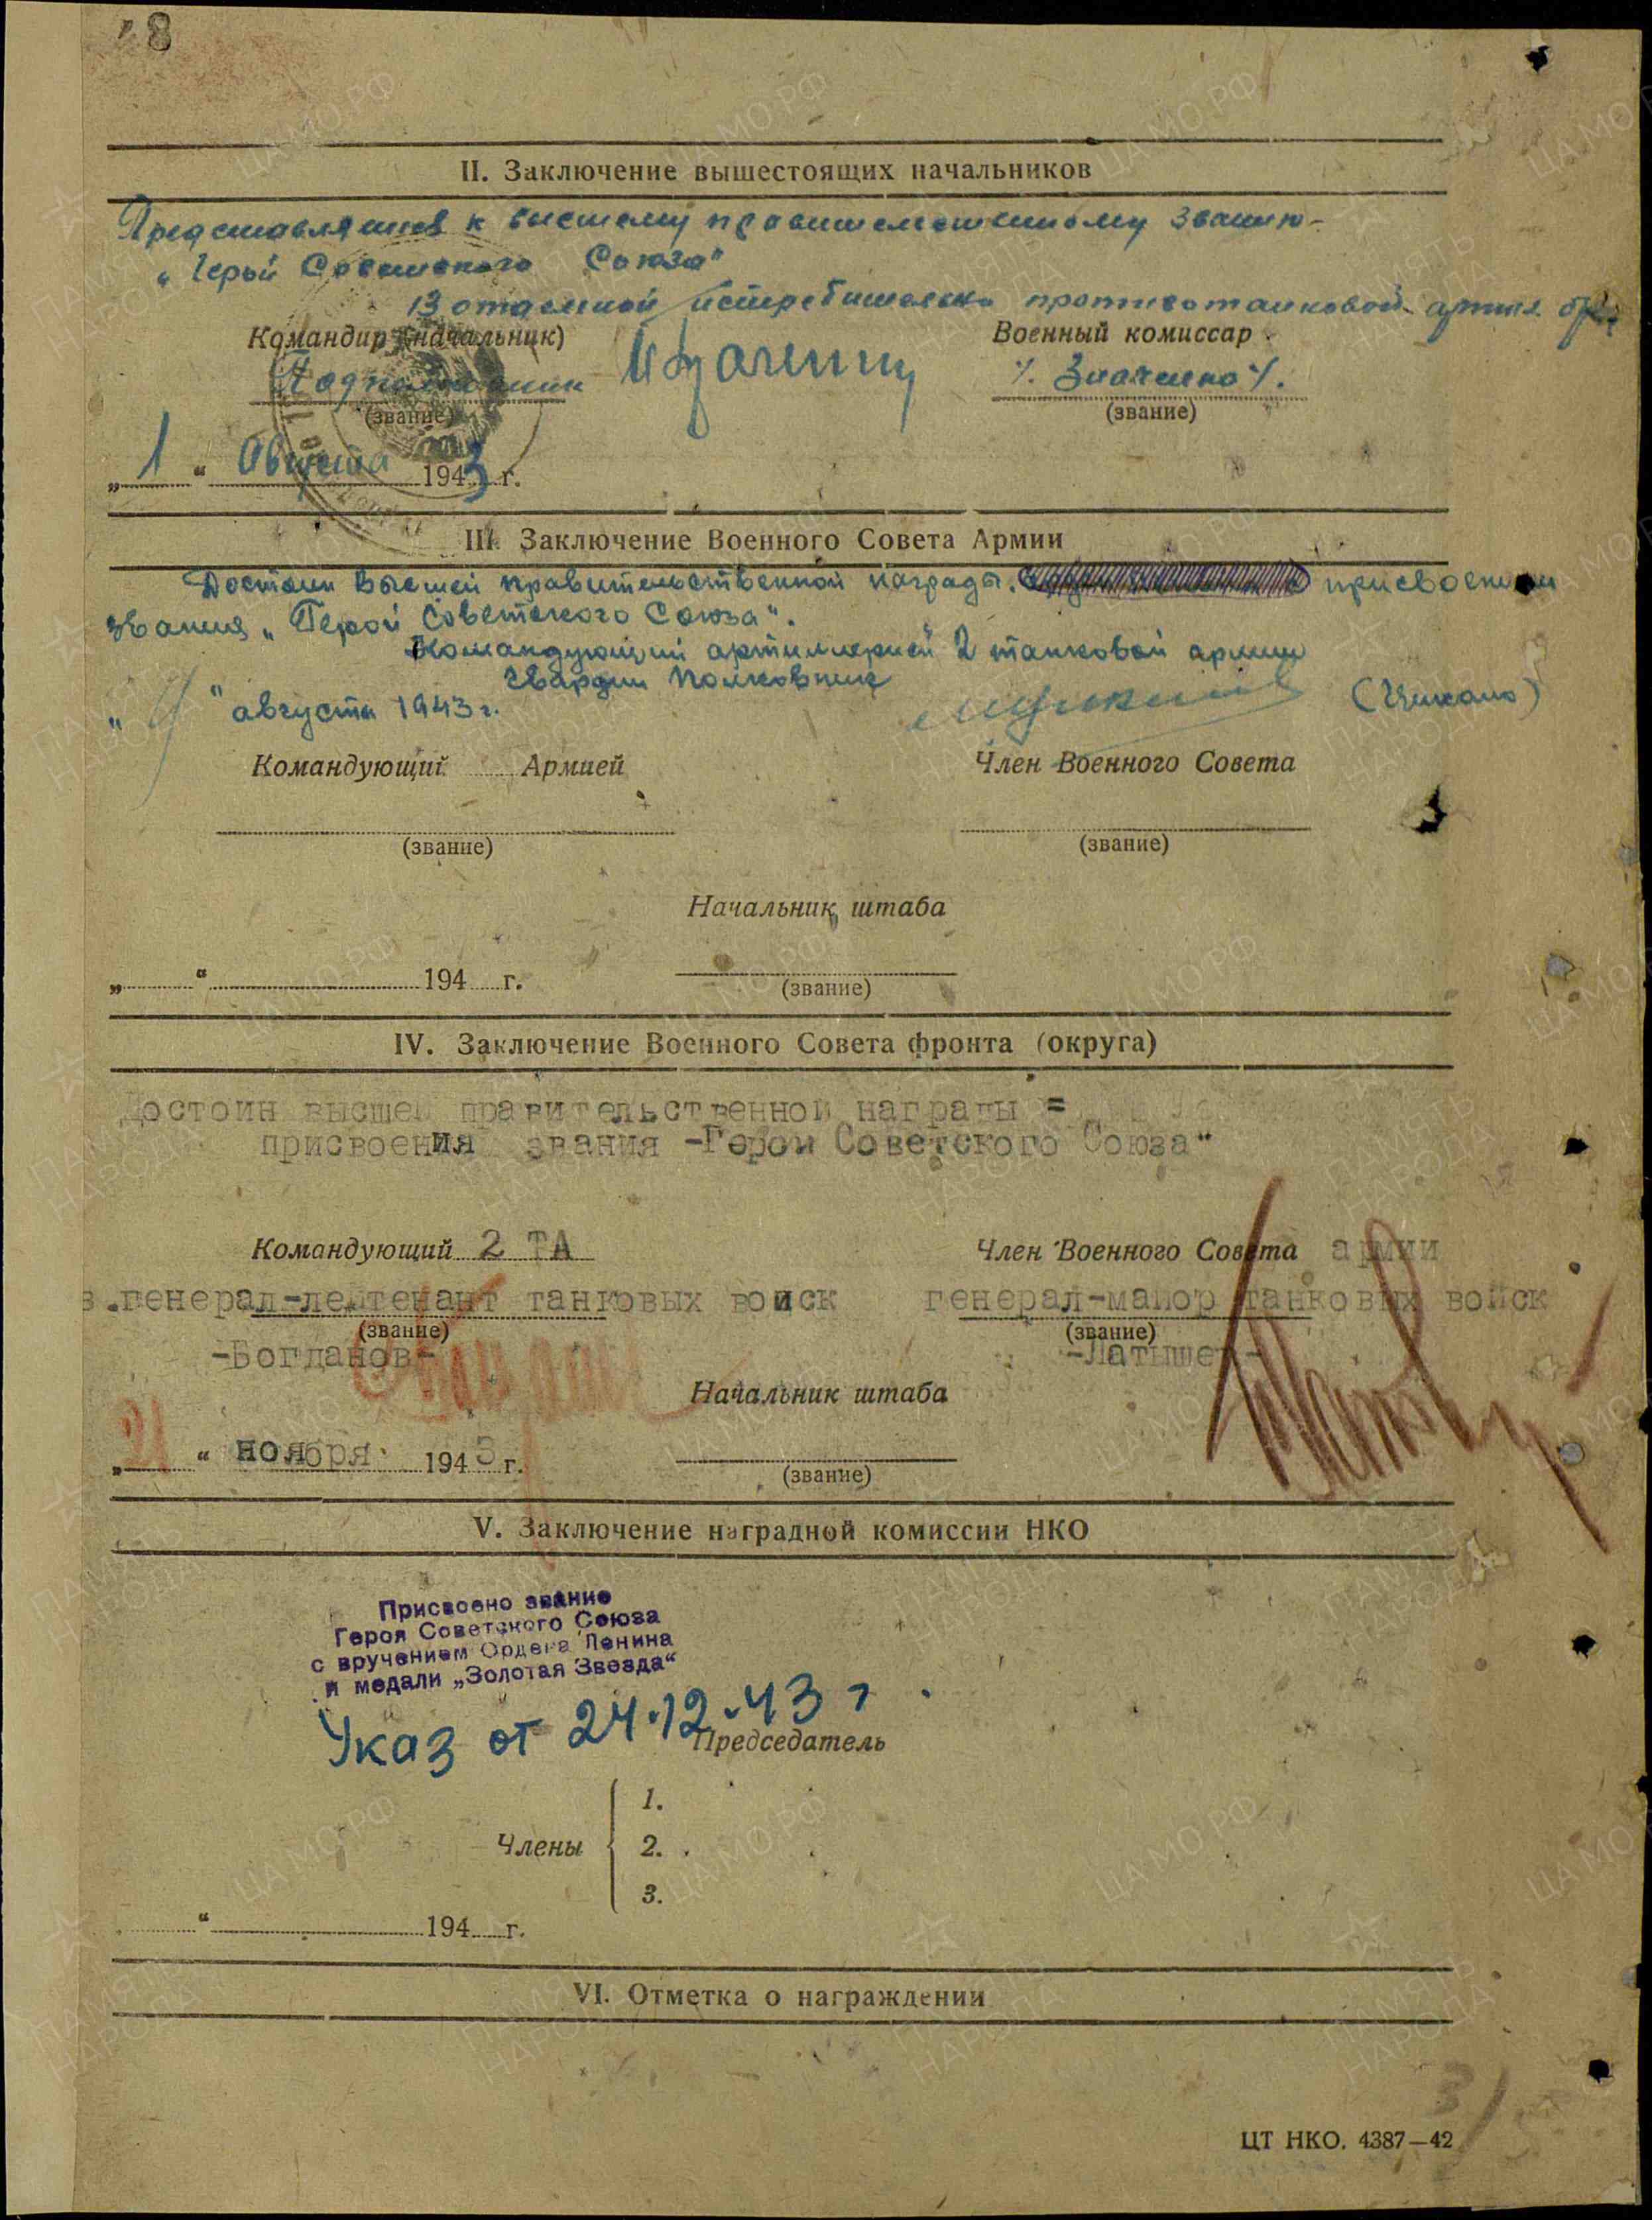 8
II. Заключение вышестоящих начальников
Представляется к высшему правительственному званию-
„Герой Советского Союза"
13 отдельной истребительно противотанковой артил. бриг
Командир (начальник)
Военный комиссар
Подполковник
(звание)
(звание)
„ 1 " Августа 1943 г.
III. Заключение Военного Совета Армии
Достоин высшей правительственной награды. присвоения
звания „Герой Советского Союза".
Командующий артиллерией 2 танковой армии
Гвардии Полковник
„ " августа 1943 г.
(Цикало)
Командующий Армией
Член Военного Совета
(звание)
(звание)
Начальник штаба
„ " 194 г.
(звание)
IV. Заключение Военного Совета фронта (округа)
Достоин высшей правительственной награды =
присвоения звания -Герой Советского Союза"
Командующий 2 ТА
Член Военного Совета армии
в.генерал-лейтенант танковых войск
генерал-майор танковых войск
(звание)
(звание)
-Богданов-
-Латышев-
Начальник штаба
„ 21 " ноября 1943 г.
(звание)
V. Заключение наградной комиссии НКО
Присвоено звание
Героя Советского Союза
с вручением Ордена Ленина
и медали „Золотая Звезда"
Указ от 24.12.43 г.
Председатель
1.
Члены 2.
3.
" 194 г.
VI. Отметка о награждении
ЦТ НКО. 4387—42